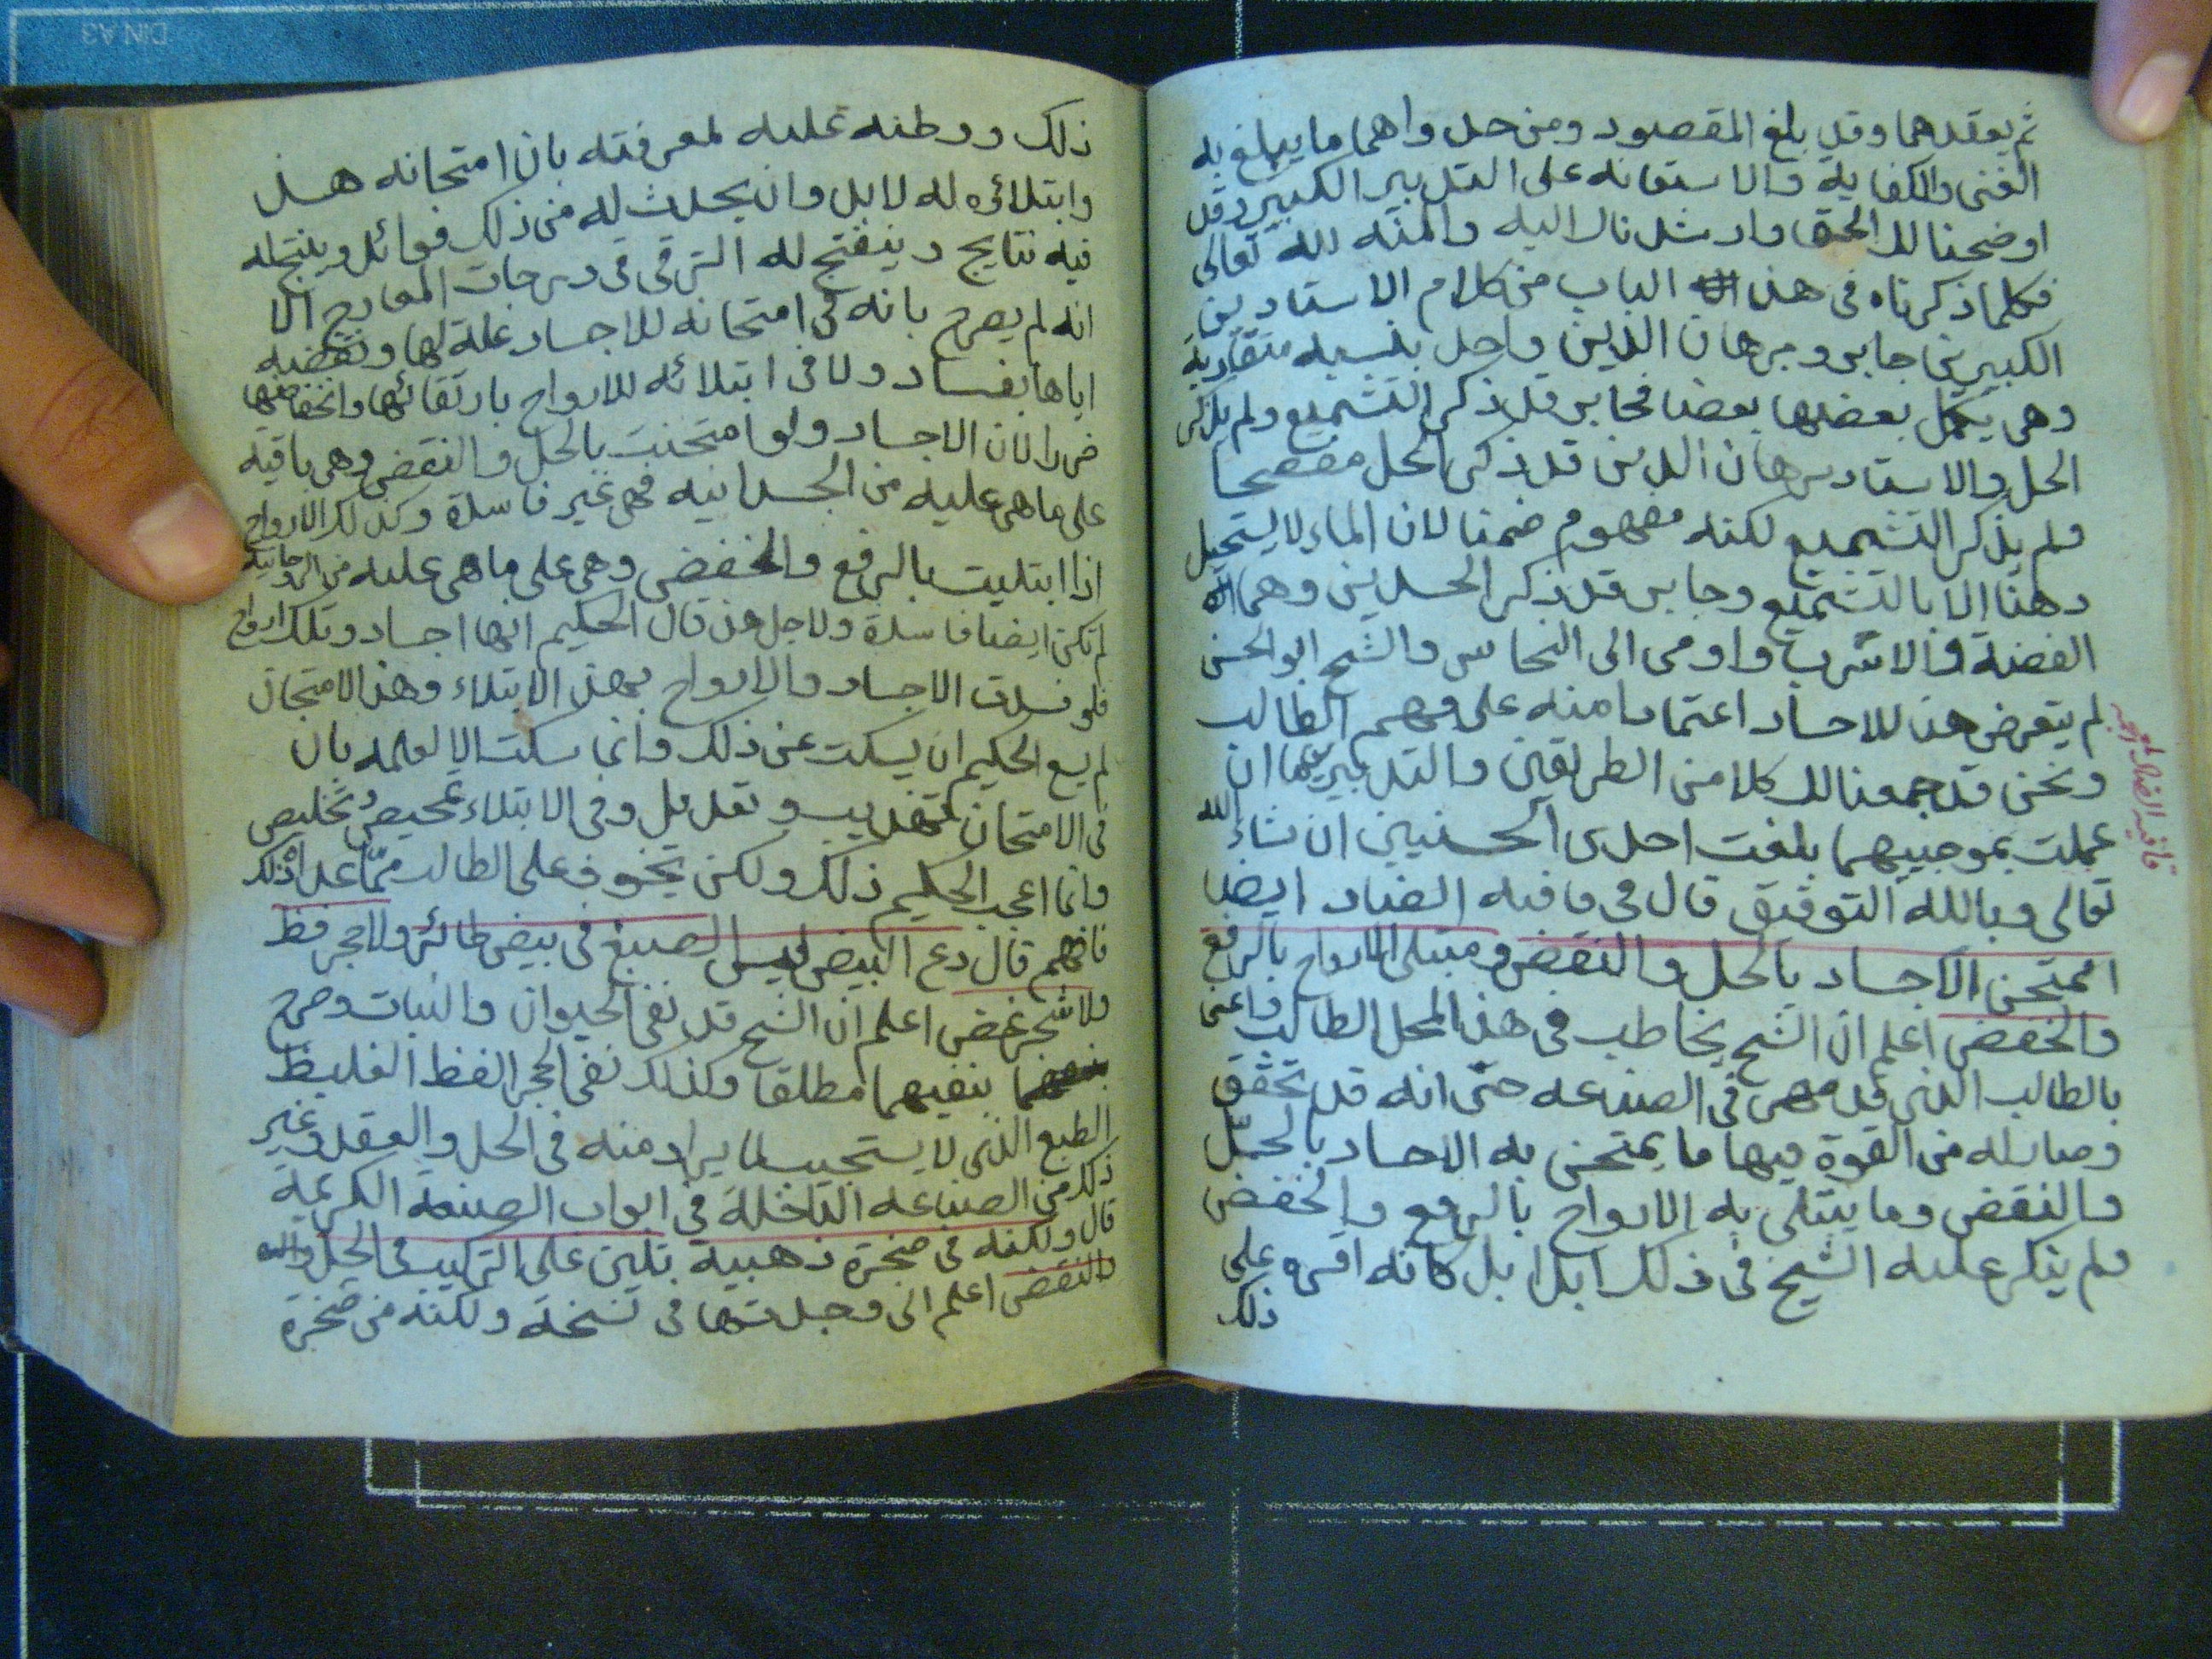 ثم يعقدهما وقد بلغ المقصود ومن حل واهما ما يبلغ به
الغنى والكفاية والاستعانه على التدبير الكبير وقد
اوضحنا لك الحق وارشدناك اليه والمنه لله تعالى
فكلما ذكرناه فى هذا الباب من كلام الاستادين
الكبيرين جابر وبرهان الدين واحل بنسبه متقاربة
وهى يكمل بعضها بعضا فجابر قد ذكر التشميع ولم يذكر
الحل والاستاد برهان الدين قد ذكر الحل مفصحا
ولم يذكر التشميع لكنه مفهوم ضمنا لان الماء لا يستحيل
دهنا الا بالتشميع وجابر قد ذكر الجسدين وهما
الفضة والاسرب واومى الى النحاس والشيخ ابو الحسن
لم يتعرض هنا للاجساد اعتمادا منه على فهم الطالب
ونحن قد جمعنا لك كلا من الطريقين والتدبيرين فما ان
عملت بموجبيهما بلغت احدى الحسنيين ان شاء الله
تعالى وبالله التوفيق قال فى قافيه الضاد ايضا
اممتحن الاجساد بالحل والنقض ومبتلى الارواح بالرفع
والخفض اعلم ان الشيخ يخاطب فى هذا المحل الطالب واعنى
بالطالب الذى قد مهر فى الصناعه حتى انه قد تحقق
وصار له من القوة فيها ما يمتحن به الاجساد بالحل
والنقض وما يبتلى به الارواح بالرفع والخفض
ولم ينكر عليه الشيخ فى ذلك ابدا بل كانه اقره على
ذلك
قافيه الضاد
ذلك ووطنه عليه لمعرفته بان امتحانه هذا
وابتلائه له لا بد وان يحدث له من ذلك فوائد وينتج له
فيه نتايج وينفتح له الترقى فى درجات المعارج الا
انه لم يصرح بانه فى امتحانه للاجساد علة لها ونقضيه
اياها بفساد ولا فى ابتلائه للارواح بارتقائها وانخفاضها
ضررا لان الاجساد ولو امتحنت بالحل والنقض وهى باقية
على ما هى عليه من الجسدانيه فهى غير فاسدة وكذلك الارواح
اذا ابتليت بالرفع والخفض وهى على ما هى عليه من الروحانية
لم تكن ايضا فاسدة ولاجل هذا قال الحكيم انها اجساد وتلك ارواح
فلو فسدت الاجساد والارواح بهذا الابتلاء وهذا الامتحان
لم يسع الحكيم ان يسكت عن ذلك وانما سكت الا لعلمه بان
فى الامتحان تهذيب وتعديل وفى الابتلاء تمحيص وتخليص
وانما اعجب الحكيم ذلك ولكن يخوف على الطالب مما عدا ذلك
فافهم قال دع البيض ليس الصبغ فى بيض طائر ولا حجر فظ
ولا شجر غض اعلم ان الشيخ قد نفى الحيوان والنبات وصرح
بنفيهما مطلقا وكذلك نفى الحجر الفظ الغليظ
الطبع الذى لا يستجيب لما يراد منه فى الحل والعقد وغير
ذلك من الصناعه الداخلة فى ابواب الصنعة الكريمة
قال ولكنه فى صخرة ذهبية تلين على التركيب فى الحل
والنقض اعلم انى وجدتها فى نسخة ولكنه من صخرة